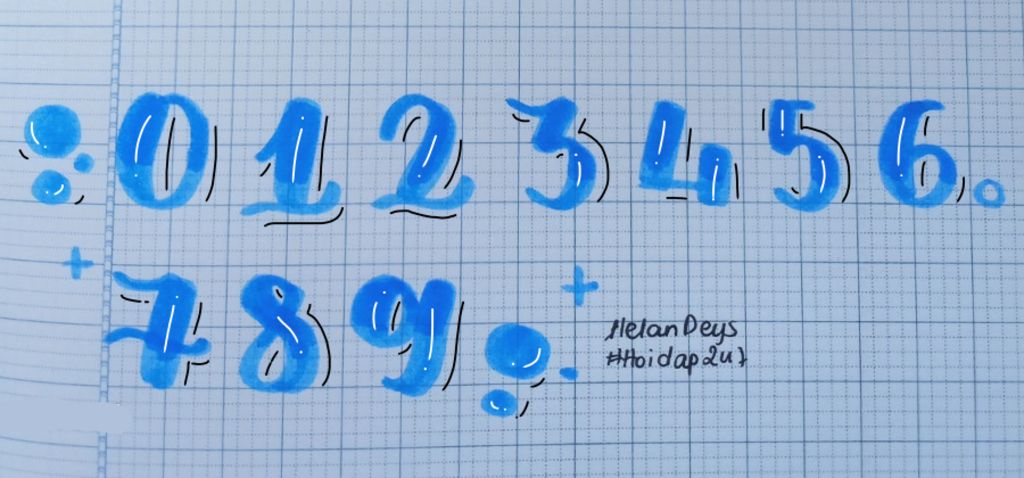 0 1 2 3 4 5 6
7 8 9
HelanDeys
#Hoidap247